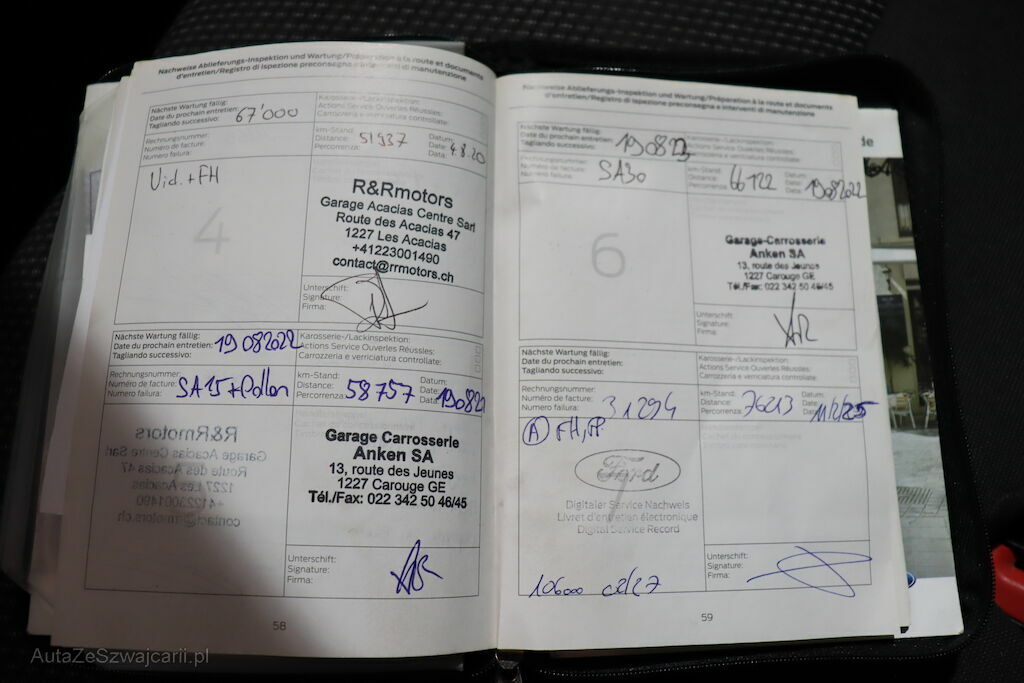 Nachweise Ablieferungs-Inspektion und Wartung/Préparation à la route et documents
d'entretien/Registro di ispezione preconsegna e interventi di manutenzione
Nächste Wartung fällig:
Date du prochain entretien: 67'000
Tagliando successivo:
Karosserie-/Lackinspektion:
Actions Service Ouverles Réussies:
Carrozzeria e verniciatura controllate:
Rechnungsnummer:
Numéro de facture:
Numero failura:
km-Stand:
Distance: 51937
Percorrenza:
Datum:
Date: 4.8.20
Data:
Vid.+FH
4
R&Rmotors
Garage Acacias Centre Sarl
Route des Acacias 47
1227 Les Acacias
+41223001490
contact@rrmotors.ch
Unterschift:
Signature:
Firma:
Nächste Wartung fällig:
Date du prochain entretien: 19 08 2022
Tagliando successivo:
Karosserie-/Lackinspektion:
Actions Service Ouverles Réussies:
Carrozzeria e verriciatura controllate:
Rechnungsnummer:
Numéro de facture: SA15+Pollen
Numero failura:
km-Stand:
Distance: 58757
Percorrenza:
Datum:
Date:
Data:
R&Rmotors
Garage Acacias Centre Sarl
Route des Acacias 47
1227 Les Acacias
+41223001490
contact@rrmotors.ch
Garage Carrosserie
Anken SA
13, route des Jeunes
1227 Carouge GE
Tél./Fax: 022 342 50 46/45
Unterschift:
Signature:
Firma:
58
Nachweise Ablieferungs-Inspektion und Wartung/Préparation à la route et documents
d'entretien/Registro di ispezione preconsegna e interventi di manutenzione
Nächste Wartung fällig:
Date du prochain entretien: 190823
Tagliando successivo:
Karosserie-/Lackinspektion:
Actions Service Ouverles Réussies:
Carrozzeria e verniciatura controllate:
Rechnungsnummer:
Numéro de facture: SA30
Numero failura:
km-Stand:
Distance: 66122
Percorrenza:
Datum:
Date: 19082022
Data:
6
Garage-Carrosserie
Anken SA
13, route des Jeunes
1227 Carouge GE
Tél./Fax: 022 342 50 46/45
Unterschift:
Signature:
Firma:
Nächste Wartung fällig:
Date du prochain entretien:
Tagliando successivo:
Karosserie-/Lackinspektion:
Actions Service Ouverles Réussies:
Carrozzeria e verniciatura controllate:
Rechnungsnummer:
Numéro de facture: 31294
Numero failura:
km-Stand:
Distance: 76213
Percorrenza:
Datum:
Date: 11/2/25
Data:
A FH, PP.
7
Ford
Digitaler Service Nachweis
Livret d'entretien électronique
Digital Service Record
Unterschift:
Signature:
Firma:
106000 02/27
59
de
AutaZeSzwajcarii.pl